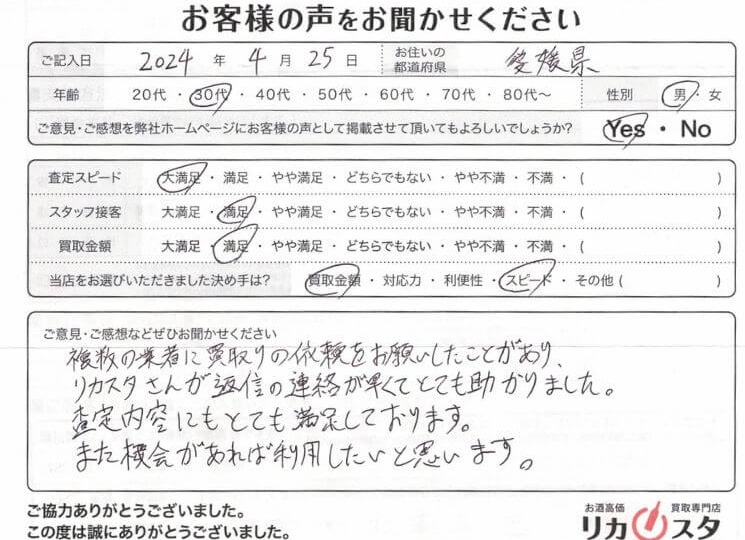 お客様の声をお聞かせください
ご記入日 2024 年 4 月 25 日 お住いの都道府県 愛媛県
年齢 20代・30代・40代・50代・60代・70代・80代〜 性別 男・女
ご意見・ご感想を弊社ホームページにお客様の声として掲載させて頂いてもよろしいでしょうか? Yes・No
査定スピード 大満足・満足・やや満足・どちらでもない・やや不満・不満・( )
スタッフ接客 大満足・満足・やや満足・どちらでもない・やや不満・不満・( )
買取金額 大満足・満足・やや満足・どちらでもない・やや不満・不満・( )
当店をお選びいただきました決め手は? 買取金額・対応力・利便性・スピード・その他( )
ご意見・ご感想などぜひお聞かせください
複数の業者に買取りの依頼をお願いしたことがあり、
リカスタさんが返信の連絡が早くてとても助かりました。
査定内容にもとても満足しております。
また機会があれば利用したいと思います。
ご協力ありがとうございました。
この度は誠にありがとうございました。
お酒高価 買取専門店
リカスタ